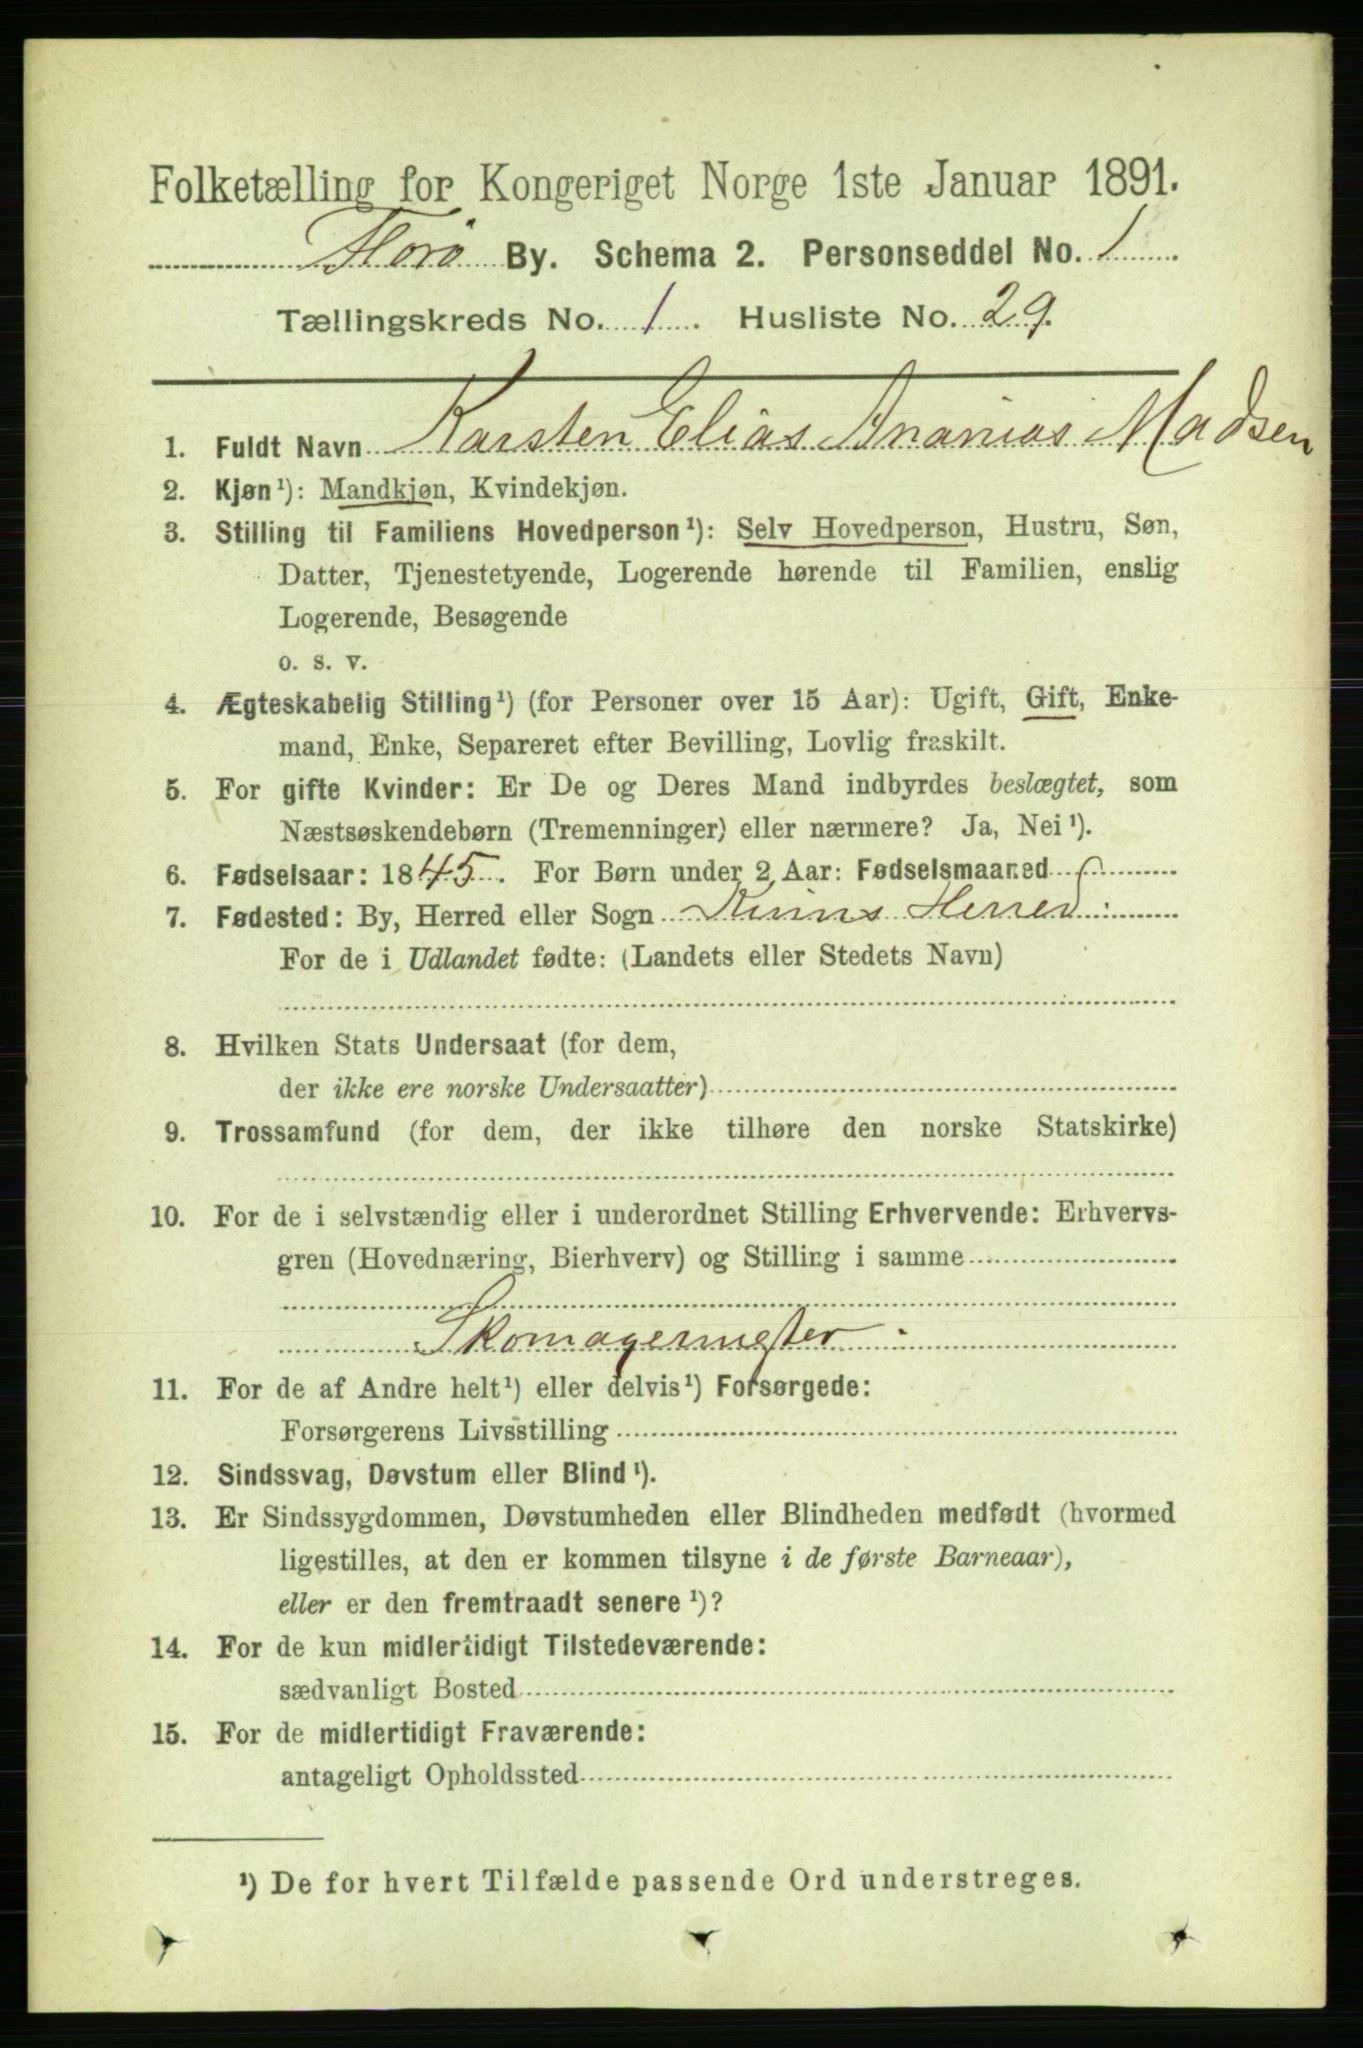 Folketælling for Kongeriget Norge 1ste Januar 1891.
Florö By. Schema 2. Personseddel No. 1
Tællingskreds No. 1. Husliste No. 29.
1. Fuldt Navn Karsten Elias Ananias Madsen
2. Kjøn¹): Mandkjøn, Kvindekjøn.
3. Stilling til Familiens Hovedperson¹): Selv Hovedperson, Hustru, Søn,
Datter, Tjenestetyende, Logerende hørende til Familien, enslig
Logerende, Besøgende
o. s. v.
4. Ægteskabelig Stilling¹) (for Personer over 15 Aar): Ugift, Gift, Enke-
mand, Enke, Separeret efter Bevilling, Lovlig fraskilt.
5. For gifte Kvinder: Er De og Deres Mand indbyrdes beslægtet, som
Næstsøskendebørn (Tremenninger) eller nærmere? Ja, Nei¹).
6. Fødselsaar: 1845. For Børn under 2 Aar: Fødselsmaaned
7. Fødested: By, Herred eller Sogn Kinns Herred
For de i Udlandet fødte: (Landets eller Stedets Navn)
8. Hvilken Stats Undersaat (for dem,
der ikke ere norske Undersaatter)
9. Trossamfund (for dem, der ikke tilhøre den norske Statskirke)
10. For de i selvstændig eller i underordnet Stilling Erhvervende: Erhvervs-
gren (Hovednæring, Bierhverv) og Stilling i samme
Skomagermester
11. For de af Andre helt¹) eller delvis¹) Forsørgede:
Forsørgerens Livsstilling
12. Sindssvag, Døvstum eller Blind¹).
13. Er Sindssygdommen, Døvstumheden eller Blindheden medfødt (hvormed
ligestilles, at den er kommen tilsyne i de første Barneaar),
eller er den fremtraadt senere¹)?
14. For de kun midlertidigt Tilstedeværende:
sædvanligt Bosted
15. For de midlertidigt Fraværende:
antageligt Opholdssted
¹) De for hvert Tilfælde passende Ord understreges.